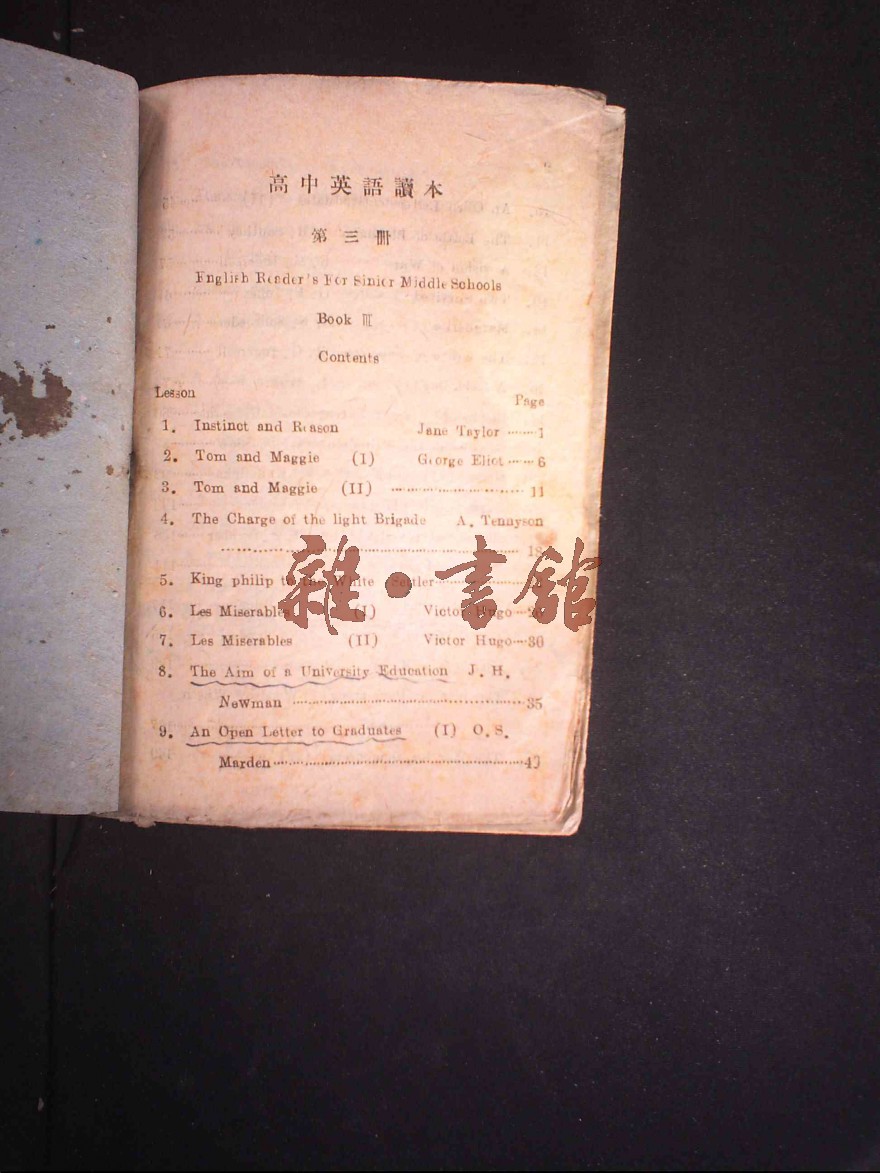 高中英語讀本
第三冊
English Reader's For Sinior Middle Schools
Book III
Contents
Lesson Page
1. Instinct and Reason Jane Taylor ······· 1
2. Tom and Maggie (I) George Eliot ······ 6
3. Tom and Maggie (II) ···························· 11
4. The Charge of the light Brigade A. Tennyson
5. King philip to the White Settler
6. Les Miserables (I) Victor Hugo
7. Les Miserables (II) Victor Hugo ···30
8. The Aim of a University Education J. H.
Newman ················································35
9. An Open Letter to Graduates (I) O. S.
Marden
雜·書館